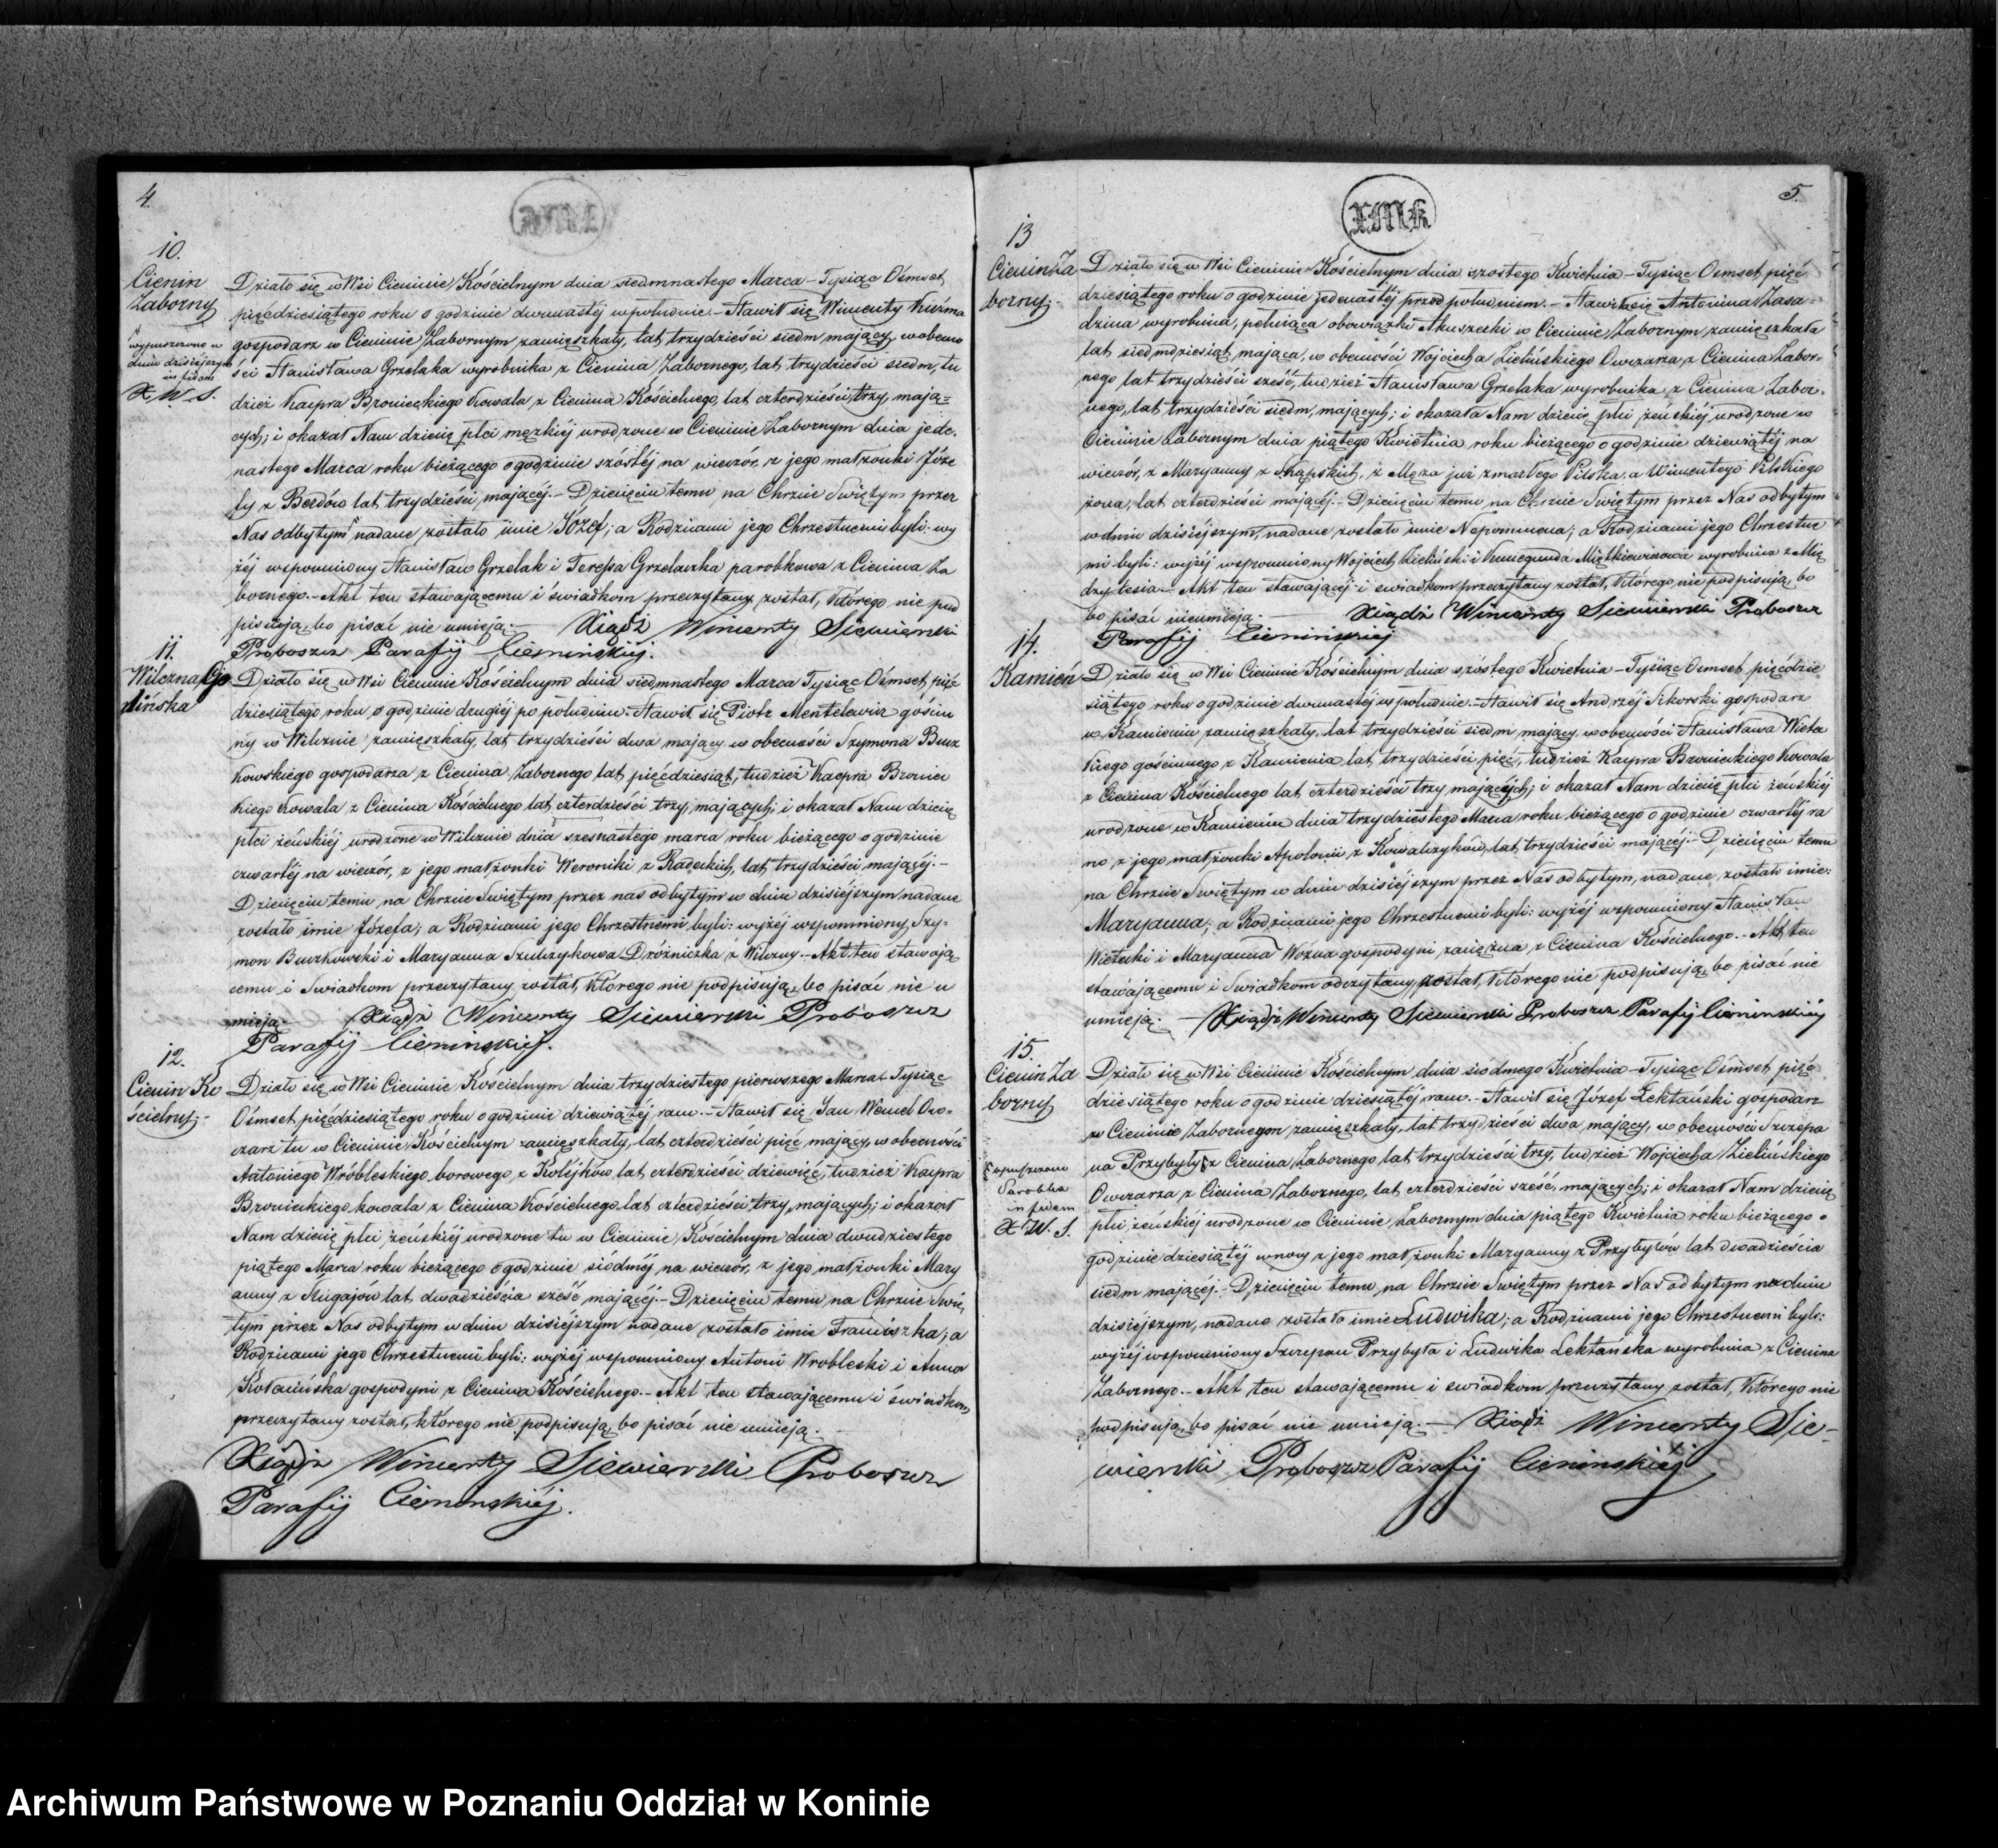 4.
10.
Cienin
Zaborny
wypuszczono w
dniu dzisiejszym
in fidem
X. W. S.
Działo się w Wsi Cieninie Kościelnym dnia siedmnastego Marca – Tysiąc Ośmset
pięćdziesiątego roku o godzinie dwunastej w południe. – Stawił się Wincenty Kuźma
gospodarz w Cieninie Zabornym zamięszkały, lat trzydzieści siedm, mający, w obecno
ści Stanisława Grzelaka wyrobnika z Cienina Zabornego, lat trzydzieści siedm, tu
dzież Kacpra Bronieckiego Kowala, z Cienina Kościelnego, lat czterdzieści trzy, mają=
cych; i okazał Nam dziecię płci męzkiéj urodzone w Cieninie Zabornym dnia jede.
nastego Marca roku bieżącego o godzinie szóstéj na wieczór, z jego małżonki Józe
fy z Berdów lat trzydzieści, mającéj. – Dziecięciu temu, na Chrzcie Świętym przez
Nas odbytym nadane zostało imie Józef; a Rodzicami jego Chrzestnemi byli: wy
żéj wspomniony Stanisław Grzelak i Teressa Grzelaczka parobkowa z Cienina Za
bornego. – Akt ten stawającemu i świadkom przeczytany został, którego nie pod
pisują, bo pisać nie umieją. – Xiądz Wincenty Siewierski
Proboszcz Parafij Cieninskiéj.
11.
Wilczna Go
dlińska
Działo się w Wsi Cieninie Kościelnym dnia siedmnastego Marca Tysiąc Ośmset pięć
dziesiątego roku o godzinie drugiéj po południu. – Stawił się Piotr Mentelewicz gościn
ny w Wilcznie zamięszkały, lat trzydzieści dwa mający w obecności Szymona Bucz
kowskiego gospodarza z Cienina Zabornego lat pięćdziesiąt, tudzież Kacpra Broniec
kiego Kowala z Cienina Kościelnego lat czterdzieści trzy, mających; i okazał Nam dziecię
płci żeńskiéj urodzone w Wilcznie dnia szesnastego marca roku bieżącego o godzinie
czwartéj na wieczór, z jego małżonki Weroniki z Radeckich, lat trzydzieści mającéj. –
Dziecięciu temu na Chrzcie Świętym przez nas odbytym w dniu dzisiéjszym nadane
zostało imie Józefa; a Rodzicami jego Chrzestnemi byli: wyżéj wspomniony Szy-
mon Buczkowski i Maryanna Szulczykowa Dróżniczka z Wilczny. – Akt ten stawają
cemu i Świadkom przeczytany został, którego nie podpisują, bo pisać nie u
mieją. – Xiądz Wincenty Siewierski Proboszcz
Parafij Cieninskiéj.
12.
Cienin Ko
ścielny. –
Działo się w Wsi Cieninie Kościelnym dnia trzydziestego pierwszego Marca Tysiąc
Ośmset pięćdziesiątego roku o godzinie dziewiątéj rano. – Stawił się Jan Wencel Ow-
czarz tu w Cieninie Kościelnym zamięszkały, lat czterdzieści pięć mający, w obecności
Antoniego Wróbleskiego borowego z Koléjków lat czterdzieści dziewięć, tudzież Kacpra
Bronieckiego kowala z Cienina Kościelnego lat czterdzieści trzy, mających; i okazał
Nam dziecię płci żeńskiéj urodzone tu w Cieninie Kościelnym dnia dwudziestego
piątego Marca roku bieżącego o godzinie siódméj na wieczór, z jego małżonki Mary
anny z Sługajów lat dwadzieścia sześć mającéj. – Dziecięciu temu, na Chrzcie Świę
tym przez Nas odbytym w dniu dzisiéjszym nadane zostało imie Franciszka; a
Rodzicami jego Chrzestnemi byli: wyżéj wspomniony Antoni Wrobleski i Anna
Kotacińska gospodyni z Cienina Kościelnego. – Akt ten stawającemu i świadkom
przeczytany został, którego nie podpisują, bo pisać nie umieją. –
Xiądz Wincenty Siewierski Proboszcz
Parafij Cieninskiéj.
5.
XMK
13
Cienin Za
borny. –
Działo się w Wsi Cieninie Kościelnym dnia szóstego Kwietnia – Tysiąc Ośmset pięć
dziesiątego roku o godzinie jedenastéj przed południem. – Stawiła się Antonina Zasa=
dzina wyrobnica, pełniąca obowiązki Akuszerki w Cieninie Zabornym zamięszkała
lat siedmdziesiąt mająca, w obecności Wojciecha Zielińskiego Owczarza, z Cienina Zabor=
nego lat trzydzieści sześć, tudzież Stanisława Grzelaka wyrobnika, z Cienina Zabor.
nego, lat trzydzieści siedm, mających; i okazała Nam dziecię płci żeńskiéj urodzone w
Cieninie Zabornym dnia piątego Kwietnia roku bieżącego o godzinie dziewiątéj na
wieczór, z Maryanny z Skąpskich, z Męża już zmarłego Pilska, a Wincentego Pilskiego
żona, lat czterdzieści mającéj. – Dziecięciu temu na Chrzcie Świętym przez Nas odbytym
w dniu dzisiéjszym, nadane zostało imie Nepomucena; a Rodzicami jego Chrzestne
mi byli: wyżéj wspomniony Wojciech Zieliński i Kunegunda Miętkiewiczowa wyrobnica z Mię
dzylesia. – Akt ten stawającéj i świadkom przeczytany został, którego nie podpisują, bo
bo pisać nieumieją. – Xiądz Wincenty Siewierski Proboszcz
Parafij Cieninskiej
14.
Kamień
Działo się w Wsi Cieninie Kościelnym dnia szóstego Kwietnia – Tysiąc Ośmset pięćdzie
siątego roku o godzinie dwunastéj w południe. – Stawił się Andrzéj Sikorski gospodarz
w Kamieniu zamięszkały, lat trzydzieści siedm mający, w obecności Stanisława Wiete
kiego gościnnego z Kamienia lat trzydzieści pięć, tudzież Kacpra Bronieckiego kowala
z Cienina Kościelnego lat czterdzieści trzy mających; i okazał Nam dziecię płci żeńskiéj
urodzone w Kamieniu dnia trzydziestego Marca roku bieżącego o godzinie czwartéj ra
no, z jego małżonki Apolonii z Kowalczyków, lat trzydzieści mającéj. – Dziecięciu temu
na Chrzcie Świętym w dniu dzisiéjszym przez Nas odbytym, nadane zostało imie:
Maryanna; a Rodzicami jego Chrzestnemi byli: wyżéj wspomniony Stanisław
Wietecki i Maryanna Woźna gospodyni zamężna z Cienina Kościelnego. – Akt ten
stawającemu i Świadkom odczytany został, którego nie podpisują, bo pisać nie
umieją. – Xiądz Wincenty Siewierski Proboszcz Parafij Cieninskiéj
15.
Cienin Za
borny
wypuszczono
Parobka
in fidem
X. W. S.
Działo się w Wsi Cieninie Kościelnym dnia siódmego Kwietnia – Tysiąc Ośmset pięć
dziesiątego roku o godzinie dziesiątéj rano. – Stawił się Józef Lektański gospodarz
w Cieninie Zabornym zamięszkały, lat trzydzieści dwa, mający, w obecności Szczepa
na Przybyły z Cienina Zabornego lat trzydzieści trzy, tudzież Wojciecha Zielińskiego
Owczarza z Cienina Zabornego, lat czterdzieści sześć, mających; i okazał Nam dziecię
płci żeńskiéj urodzone w Cieninie Zabornym dnia piątego Kwietnia roku bieżącego o
godzinie dziesiątéj w nocy z jego małżonki Maryanny z Przybyłów lat dwadzieścia
siedm mającéj. – Dziecięciu temu, na Chrzcie Świętym przez Nas odbytym w dniu
dzisiéjszym, nadane zostało imie Ludwika; a Rodzicami jego Chrzestnemi byli:
wyżéj wspomniony Szczepan Przybyła i Ludwika Lektańska wyrobnica z Cienina
Zabornego. – Akt ten stawającemu i świadkom przeczytany został, którego nie
podpisują, bo pisać nie umieją. – Xiądz Wincenty Sie-
wierski Proboszcz Parafij Cieninskiéj
Archiwum Państwowe w Poznaniu Oddział w Koninie